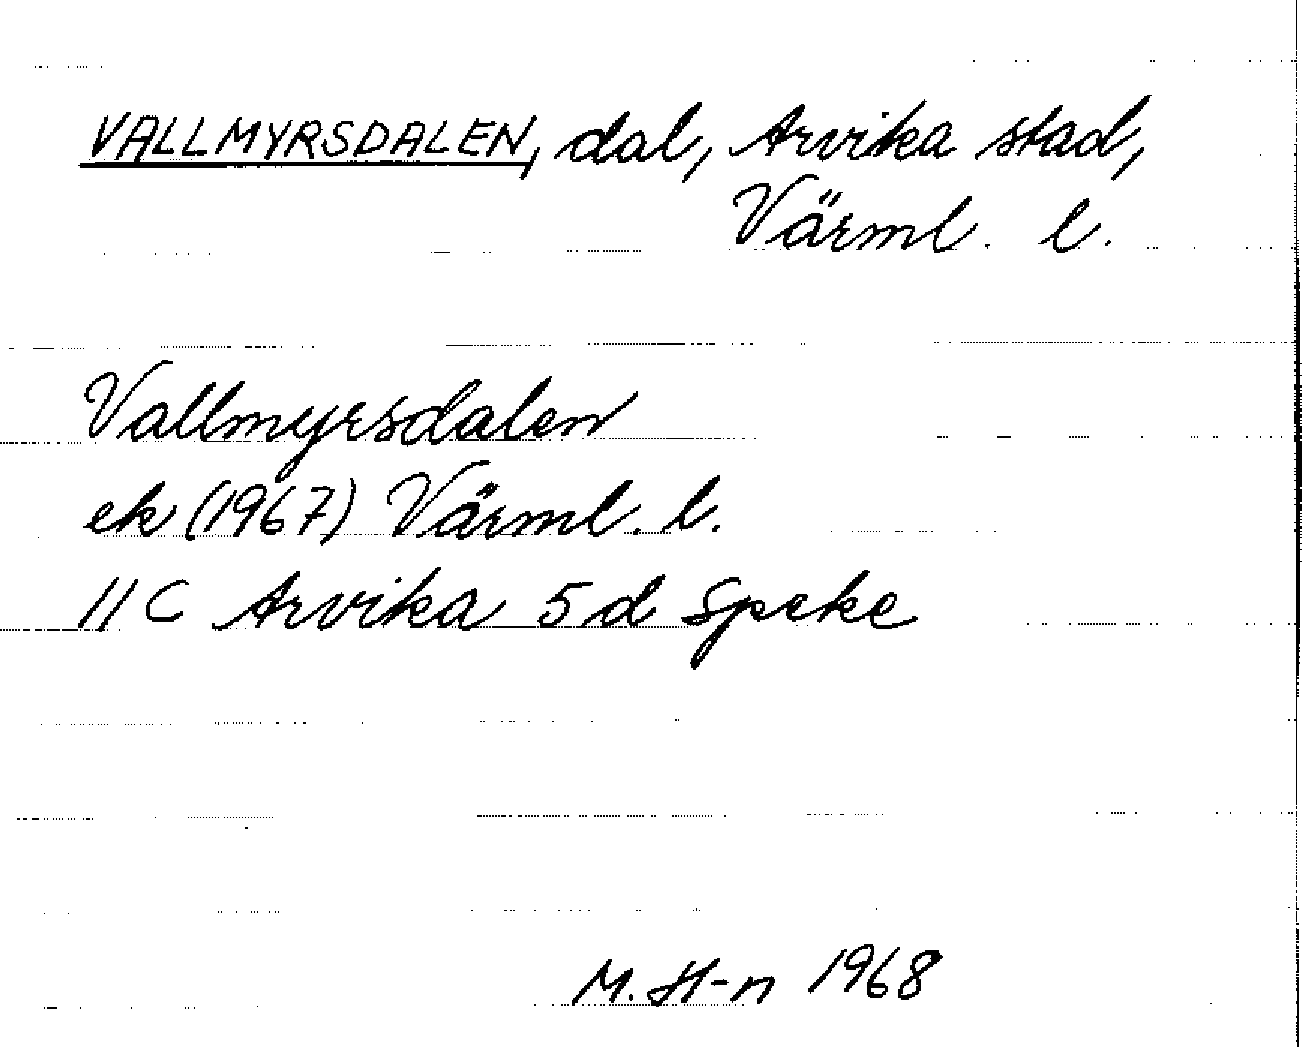 VALLMYRSDALEN, dal, Arvika stad,
Värml. l.
Vallmyrsdalen
ek (1967) Värml. l.
11 C Arvika 5 d Speke
M. H-n 1968